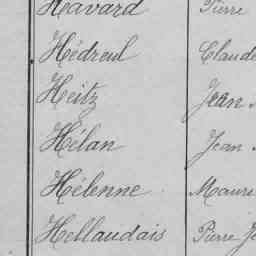 Havard Pierre
Hédreul Claude
Heitz Jean
Hélan Jean
Hélenne Maure
Hellaudais Pierre Je